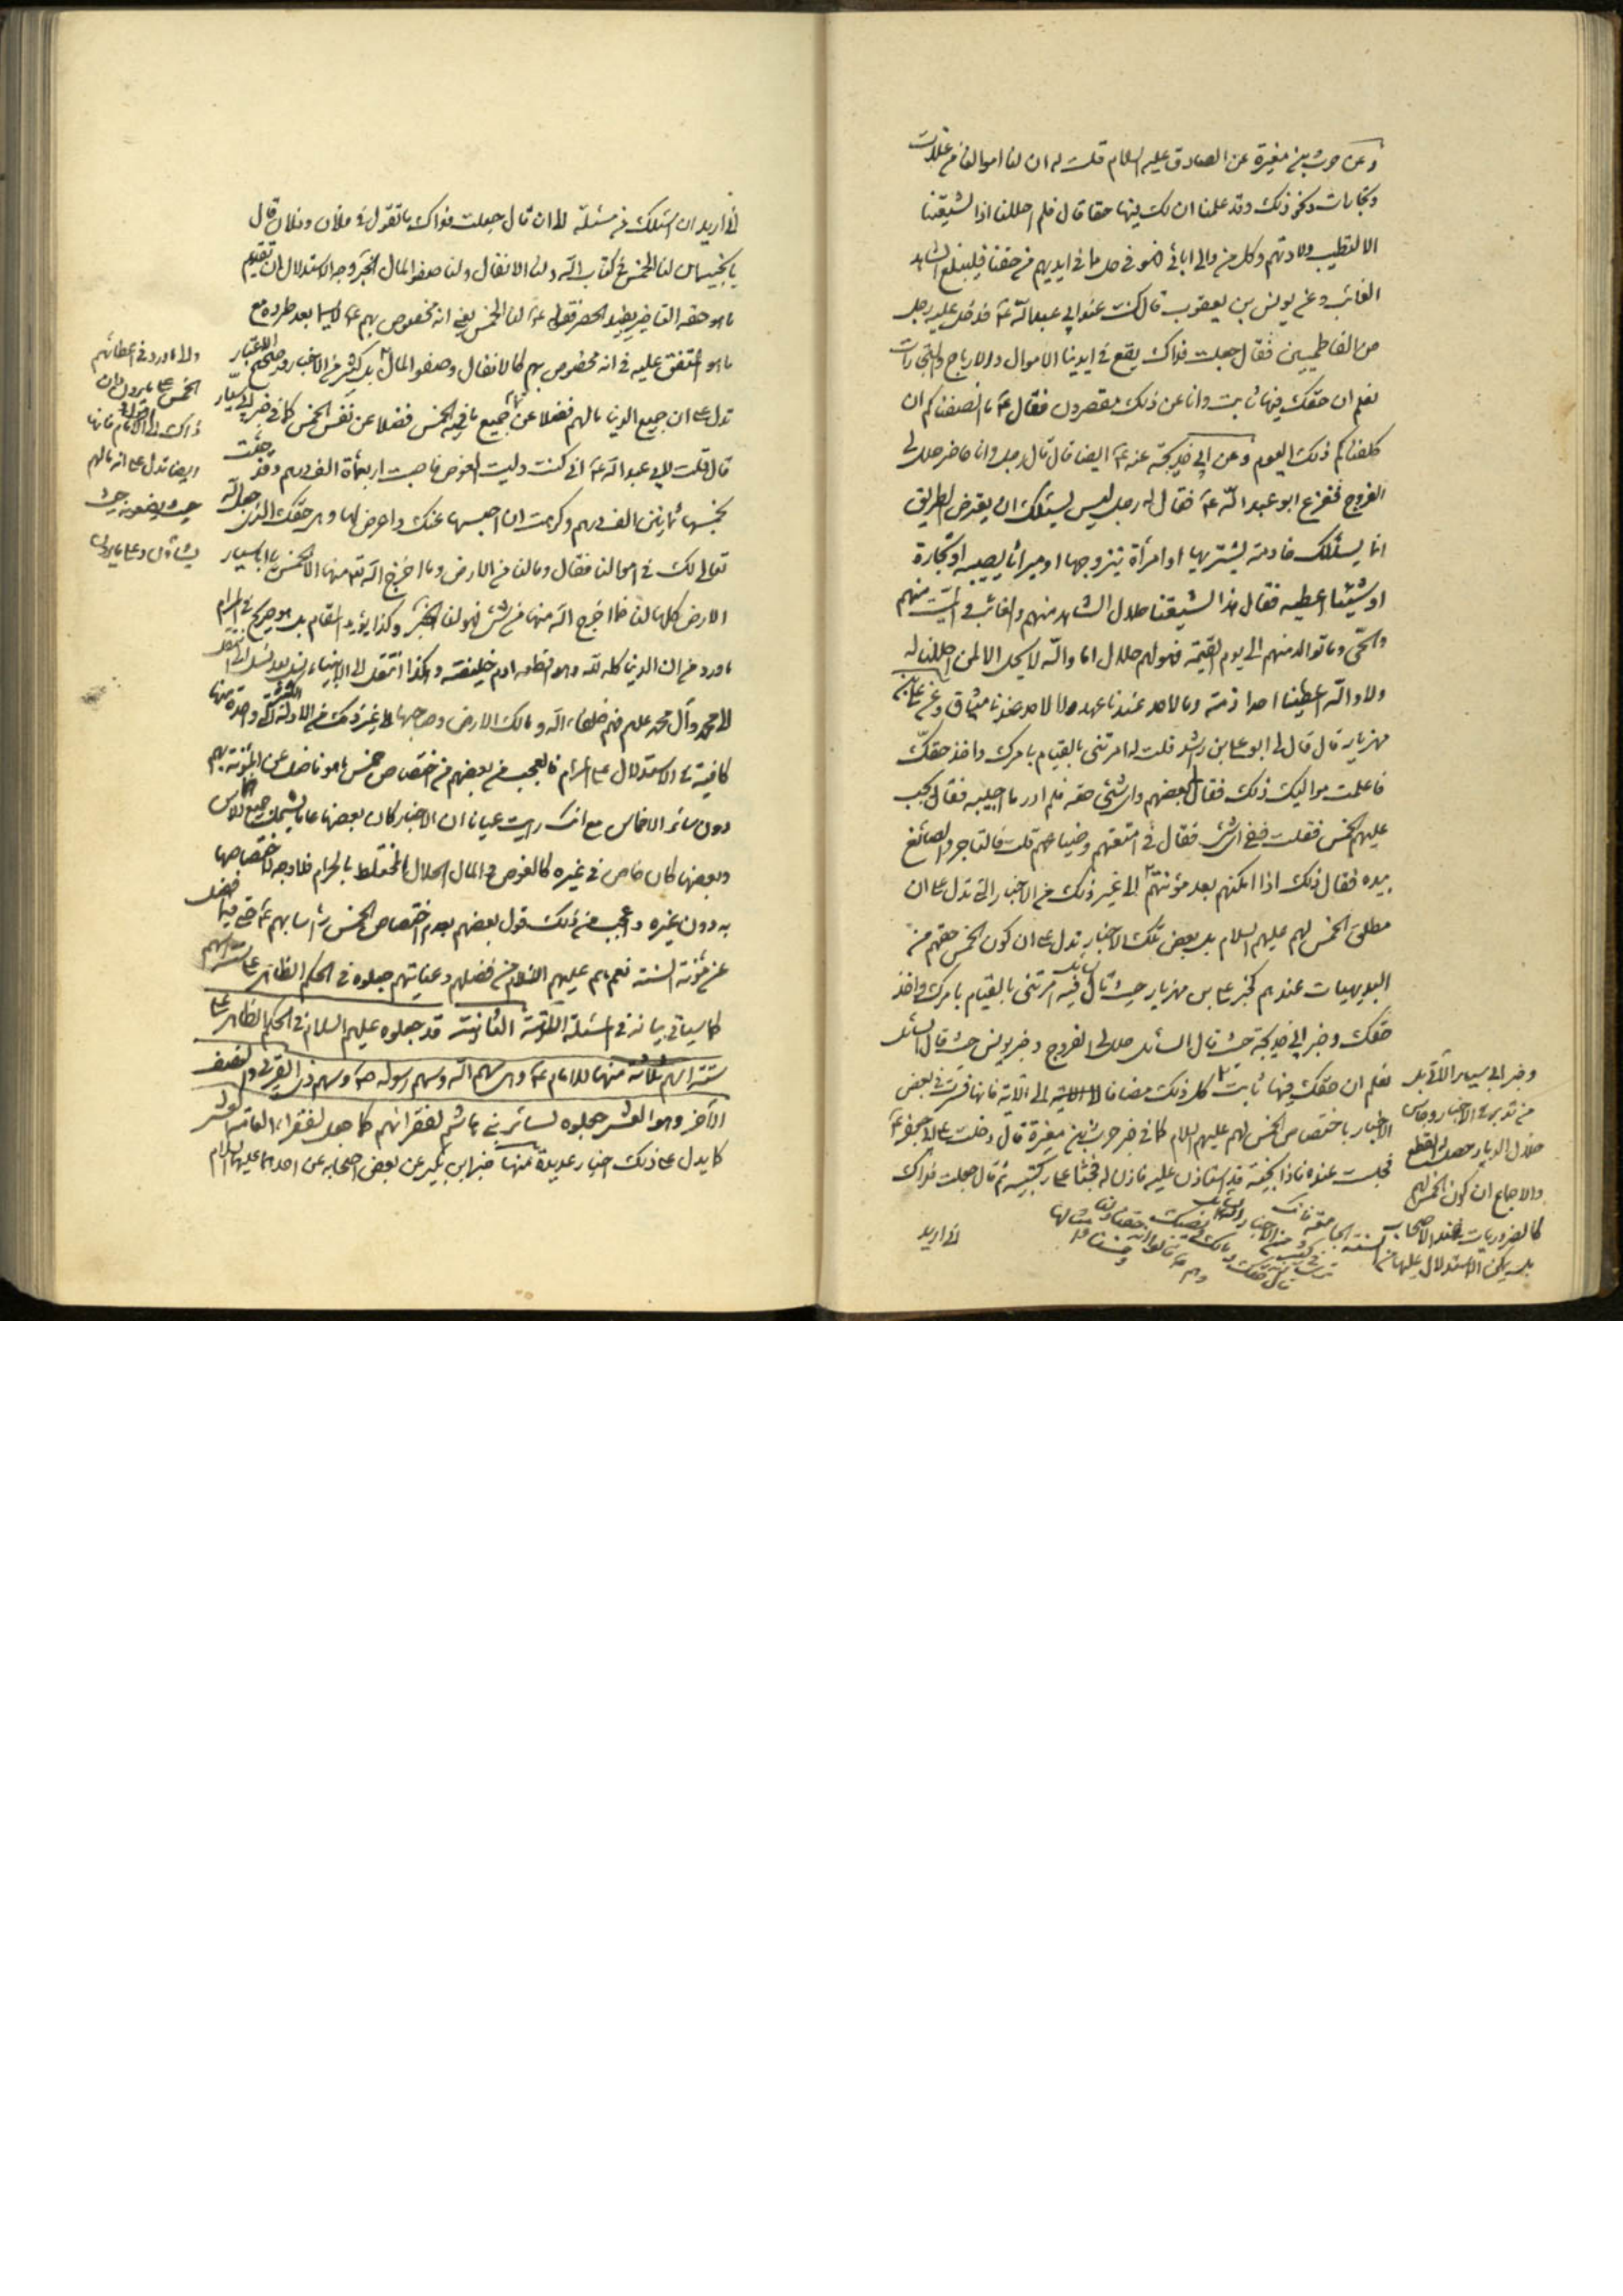 وعن حرث بن مغيرة عن الصادق عليه السلام قلت له ان لنا اموالا من غلات
وتجارات ونحو ذلك وقد علمنا ان لك فيها حقا قال فلم احللنا اذا لشيعتنا
الا لتطيب ولادتهم وكل من والى ابائى فهو فى حل مما فى ايديهم من حقنا فليبلغ الشاهد
الغائب وعن يونس بن يعقوب قال كنت عند ابي عبد الله ع فدخل عليه رجل
من القماطين فقال جعلت فداك يقع فى ايدينا الاموال والارباح والتجارات
نعلم ان حقك فيها ثابت وانا عن ذلك مقصرون فقال ع ما انصفناكم ان
كلفناكم ذلك اليوم وعن ابي خديجة عنه ع ايضا قال قال رجل وانا حاضر حلل لى
الفروج ففزع ابو عبد الله ع فقال له رجل ليس يسئلك ان يعترض الطريق
انما يسئلك خادمة يشتريها او امرأة يتزوجها او ميراثا يصيبه او تجارة
او شيئا اعطيه فقال هذا لشيعتنا حلال الشاهد منهم والغائب والميت منهم
والحى وما توالد منهم الى يوم القيمة فهو لهم حلال اما والله لا يحل الا لمن احللنا له
ولا والله ما اعطينا احدا ذمة وما لاحد عندنا عهد ولا لاحد عندنا ميثاق وعن على بن
مهزيار قال قال لى ابو على بن راشد قلت له امرتنى بالقيام بامرك واخذ حقك
فاعلمت مواليك ذلك فقال بعضهم واى شئ حقه فلم ادر ما اجيبه فقال يجب
عليهم الخمس فقلت ففى اى شئ فقال فى امتعتهم وضياعهم قلت فالتاجر والصانع
بيده فقال ذلك اذا امكنهم بعد مؤنتهم الى غير ذلك من الاخبار التى تدل على ان
مطلق الخمس لهم عليهم السلام بل بعض تلك الاخبار تدل على ان كون الخمس حقهم من
البديهيات عندهم كخبر على بن مهزيار حيث قال فيه امرتنى بالقيام بامرك واخذ
حقك وخبر ابي خديجة حيث قال السائل حلل لى الفروج وخبر يونس حيث قال السائل
نعلم ان حقك فيها ثابت كل ذلك مضافا الى الاتية فانها فسرت فى بعض
الاخبار باختصاص الخمس لهم عليهم السلام كما فى خبر حرث بن مغيرة قال دخلت على ابي جعفر ع
فجلست عنده فاذا نجية قد استاذن عليه فاذن له فجثا على ركبتيه ثم قال جعلت فداك
انى اريد
وخبر ابي سيار الاتى بل
من تدبر فى الاخبار وجاس
خلال الديار حصل له القطع
والاجماع ان كون الخمس لهم
كالضروريات عند الاصحاب
بل يمكن الاستدلال عليها من
انى اريد ان اسئلك عن مسئلة الى ان قال جعلت فداك ما تقول فى فلان وفلان قال
يا نجية ان لنا الخمس فى كتاب الله ولنا الانفال ولنا صفو المال الخبر وجه الاستدلال ان تقديم
ما هو حقه التاخير يفيد الحصر فقوله ع لنا الخمس يعنى انه مخصوص بهم ع لا سيما بعد طرده مع
ما هو المتفق عليه فى انه مخصوص بهم كالانفال وصفو المال بل كثير من الاخبار
تدل على ان جميع الدنيا مالهم فضلا عن جميع ما فيه الخمس فضلا عن نفس الخمس كما فى خبر ابي سيار
قال قلت لابي عبد الله ع انى كنت وليت الغوص فاصبت اربعمأة الف درهم وقد جئت
بخمسها ثمانين الف درهم وكرهت ان احبسها عنك واعرض لها وهى حقك الذى جعل الله
تعالى لك فى اموالنا فقال وما لنا من الارض وما اخرج الله تع منها الا الخمس يا ابا سيار
الارض كلها لنا فما اخرج الله منها من شئ فهو لنا الخبر وكذا يؤيد المقام بل هو صريح فى المرام
ما ورد من ان الدنيا كله لله وهو اعطاه ادم خليفته وهكذا انتقل الى الانبياء
الى محمد وآل محمد عليهم فهم خلفاء الله ومالك الارض وصاحبها الى غير ذلك من الادلة التى واحدة منها
كافية فى الاستدلال على المرام فالعجب من بعضهم من اختصاص خمس ما هو فاضل عن المؤنة بهم
دون سائر الاخماس مع انك رايت عيانا ان الاخبار كان بعضها عاما يشمل جميع الاخماس
وبعضها كان خاص فى غيره كالغوص والمال الحلال المختلط بالحرام فلا وجه لاختصاصها
به دون غيره واعجب من ذلك قول بعضهم بعدم اختصاص الخمس راسا بهم ع حتى فيما فضل
عن مؤنة السنة نعم هم عليهم السلام من فضلهم وعنايتهم جعلوه فى الحكم الظاهر على ستة اسهم
كما سياتى بيانه فى المسئلة الاتية الثانية قد جعلوه عليهم السلام فى الحكم الظاهر على
ستة اسهم ثلاثة منها للامام ع وهى سهم الله وسهم رسوله ص وسهم ذى القربى والنصف
الآخر وهو العشر جعلوه لسائر بنى هاشم لفقرائهم كما جعل لفقراء العامة العشر
كما يدل على ذلك اخبار عديدة منها خبر ابن بكير عن بعض اصحابه عن احدهما عليهما السلام
ولما ورد فى اعطائهم
الخمس على ما يرون وان
ذلك الى الامام فانها
ايضا تدل على انه مالهم
حيث يضعونه حيث
يشاؤن وعلى ما يرون